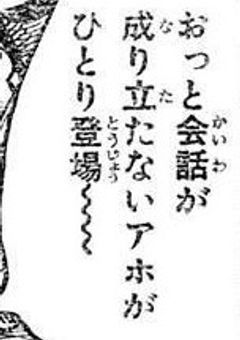 おっと会話が
成り立たないアホが
ひとり登場〜〜〜